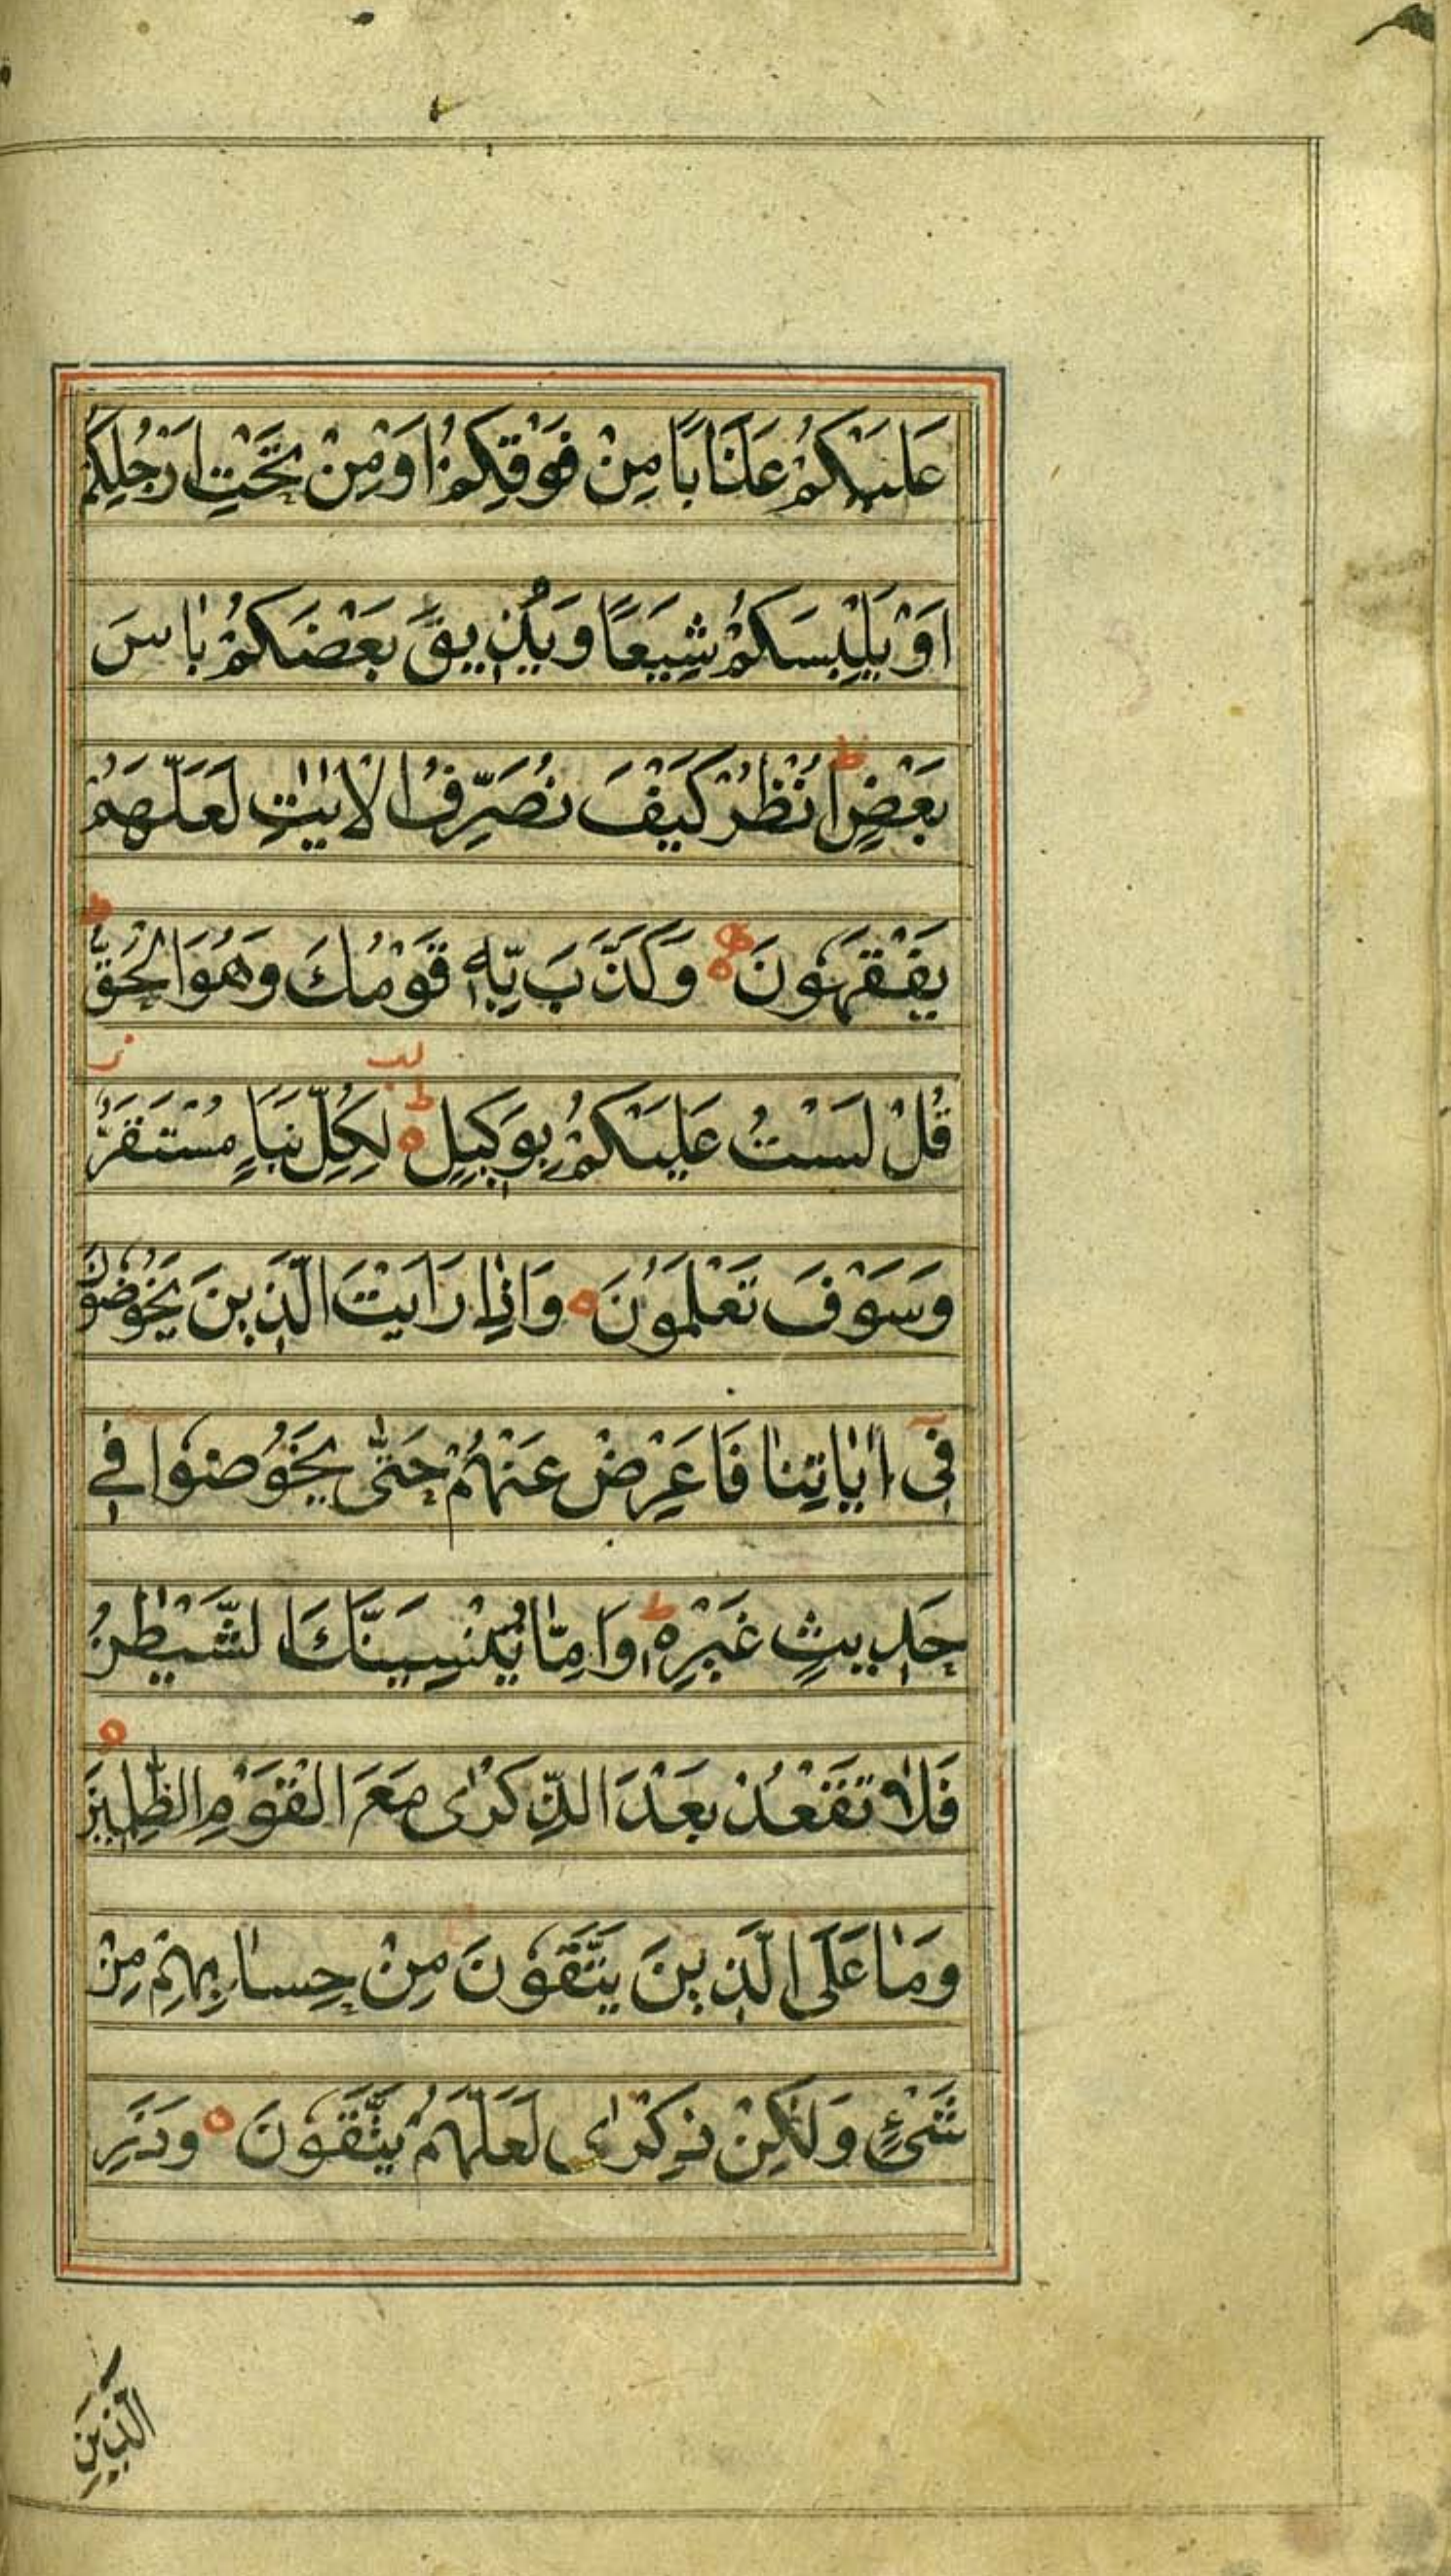 عَلَيْكُمْ عَذَابًا مِنْ فَوْقِكُمْ اَوْ مِنْ تَحْتِ اَرْجُلِكُمْ
اَوْ يَلْبِسَكُمْ شِيَعًا وَيُذِيقَ بَعْضَكُمْ بَاسَ
بَعْضٍ ط اُنْظُرْ كَيْفَ نُصَرِّفُ الْاٰيٰتِ لَعَلَّهُمْ
يَفْقَهُونَ ه وَكَذَّبَ بِهٖ قَوْمُكَ وَهُوَ الْحَقُّ ط
قُلْ لَسْتُ عَلَيْكُمْ بِوَكِيلٍ ه ط لِكُلِّ نَبَاٍ مُسْتَقَرٌّ ز
وَسَوْفَ تَعْلَمُونَ ه وَاِذَا رَاَيْتَ الَّذِينَ يَخُوضُونَ
فِىٓ اٰيَاتِنَا فَاَعْرِضْ عَنْهُمْ حَتّٰى يَخُوضُوا فِى
حَدِيثٍ غَيْرِهٖ ط وَاِمَّا يُنْسِيَنَّكَ الشَّيْطٰنُ
فَلَا تَقْعُدْ بَعْدَ الذِّكْرٰى مَعَ الْقَوْمِ الظّٰلِمِينَ ه
وَمَا عَلَى الَّذِينَ يَتَّقُونَ مِنْ حِسَابِهِمْ مِنْ
شَىْءٍ وَلٰكِنْ ذِكْرٰى لَعَلَّهُمْ يَتَّقُونَ ه وَذَرِ
الَّذِينَ